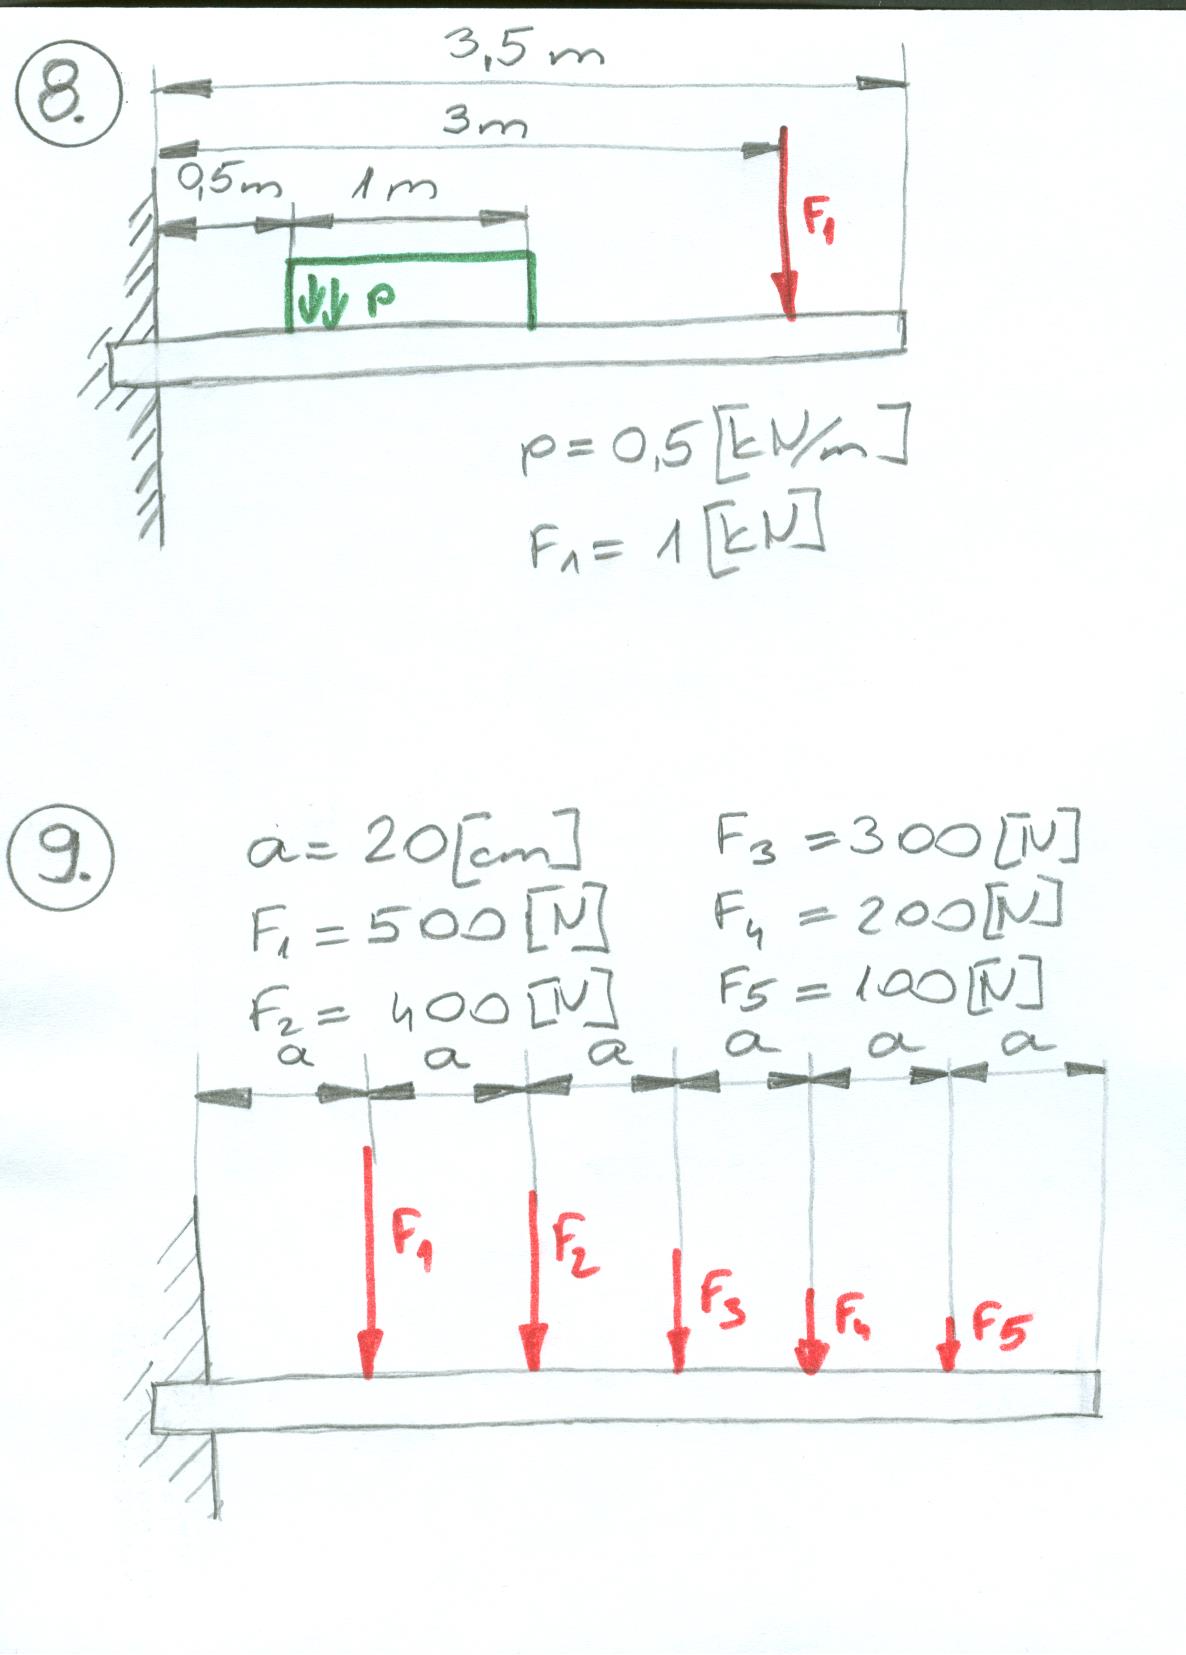 8.
3,5 m
3m
0,5m 1m
F1
p
p = 0,5 [kN/m]
F1 = 1 [kN]
9.
a = 20 [cm] F3 = 300 [N]
F1 = 500 [N] F4 = 200 [N]
F2 = 400 [N] F5 = 100 [N]
a a a a a a
F1 F2 F3 F4 F5